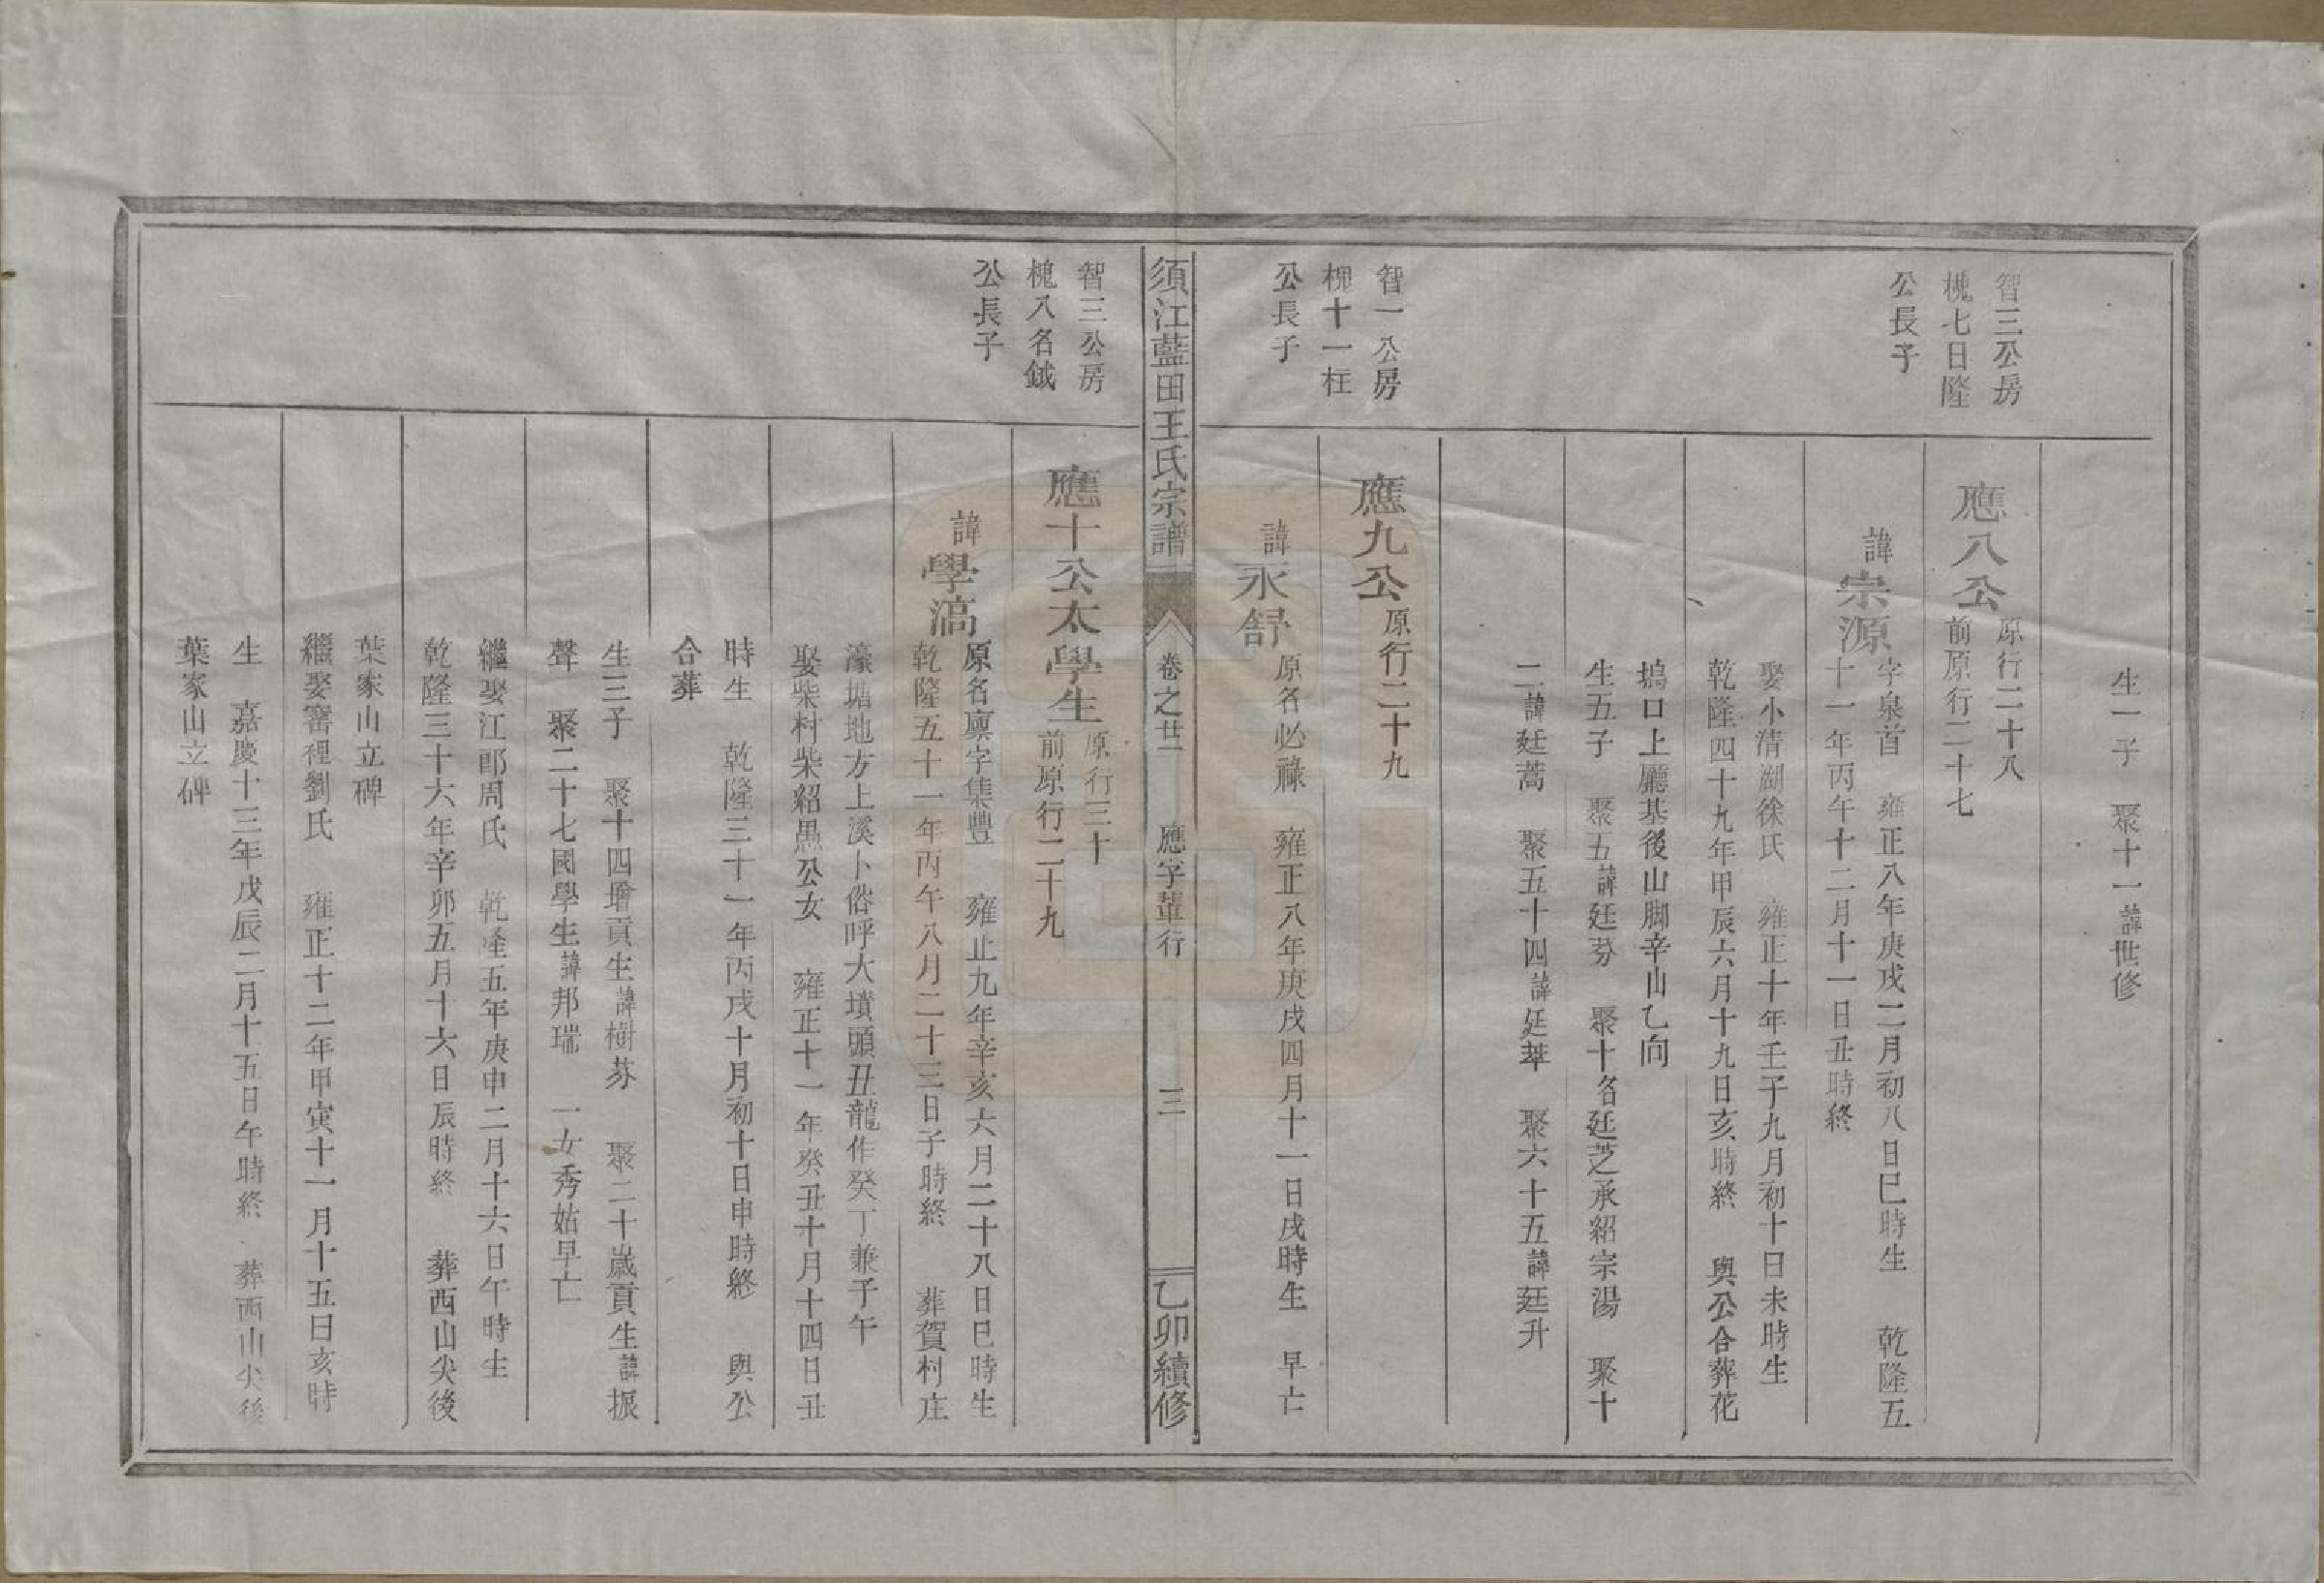 生一子　聚十一諱世修
智三公房
槐七日隆
公長子
應八公
原行二十八
前原行二十七
諱宗源
字泉首　雍正八年庚戌二月初八日巳時生　乾隆五
十一年丙午十二月十一日丑時終
娶小清湖徐氏　雍正十年壬子九月初十日未時生
乾隆四十九年甲辰六月十九日亥時終　與公合葬花
塢口上廳基後山脚辛山乙向
生五子　聚五諱廷芬　聚十名廷芝承紹宗湯　聚十
二諱廷蒿　聚五十四諱廷萃　聚六十五諱廷升
智一公房
槐十一枉
公長子
應九公
原行二十九
諱永舒
原名必祿　雍正八年庚戌四月十一日戌時生　早亡
須江藍田王氏宗譜
卷之廿一　應字輩行　三
乙卯續修
智三公房
槐八名鉞
公長子
應十公太學生
原行三十
前原行二十九
諱學滈
原名稟字集豐　雍正九年辛亥六月二十八日巳時生
乾隆五十一年丙午八月二十三日子時終　葬賀村庄
濠塘地方上溪卜俗呼大墳頭丑龍作癸丁兼子午
娶柴村柴紹黑公女　雍正十一年癸丑十月十四日丑
時生　乾隆三十一年丙戌十月初十日申時終　與公
合葬
生三子　聚十四增貢生諱樹芬　聚二十歲貢生諱振
聲　聚二十七國學生諱邦瑞　一女秀姑早亡
繼娶江郎周氏　乾隆五年庚申二月十六日午時生
乾隆三十六年辛卯五月十六日辰時終　葬西山尖後
葉家山立碑
繼娶窰裡劉氏　雍正十二年甲寅十一月十五日亥時
生　嘉慶十三年戊辰二月十五日午時終　葬西山尖後
葉家山立碑